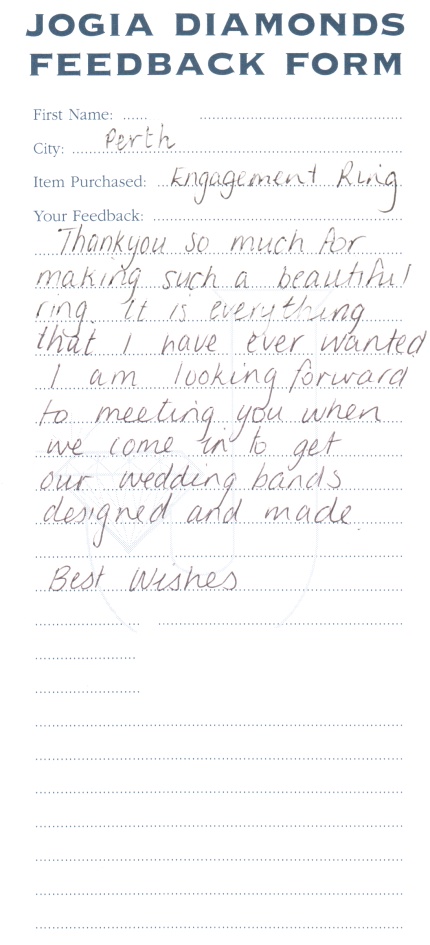 JOGIA DIAMONDS
FEEDBACK FORM
First Name:
City: Perth
Item Purchased: Engagement Ring
Your Feedback:
Thankyou so much for
making such a beautiful
ring. It is everything
that I have ever wanted
I am looking forward
to meeting you when
we come in to get
our wedding bands
designed and made.
Best Wishes